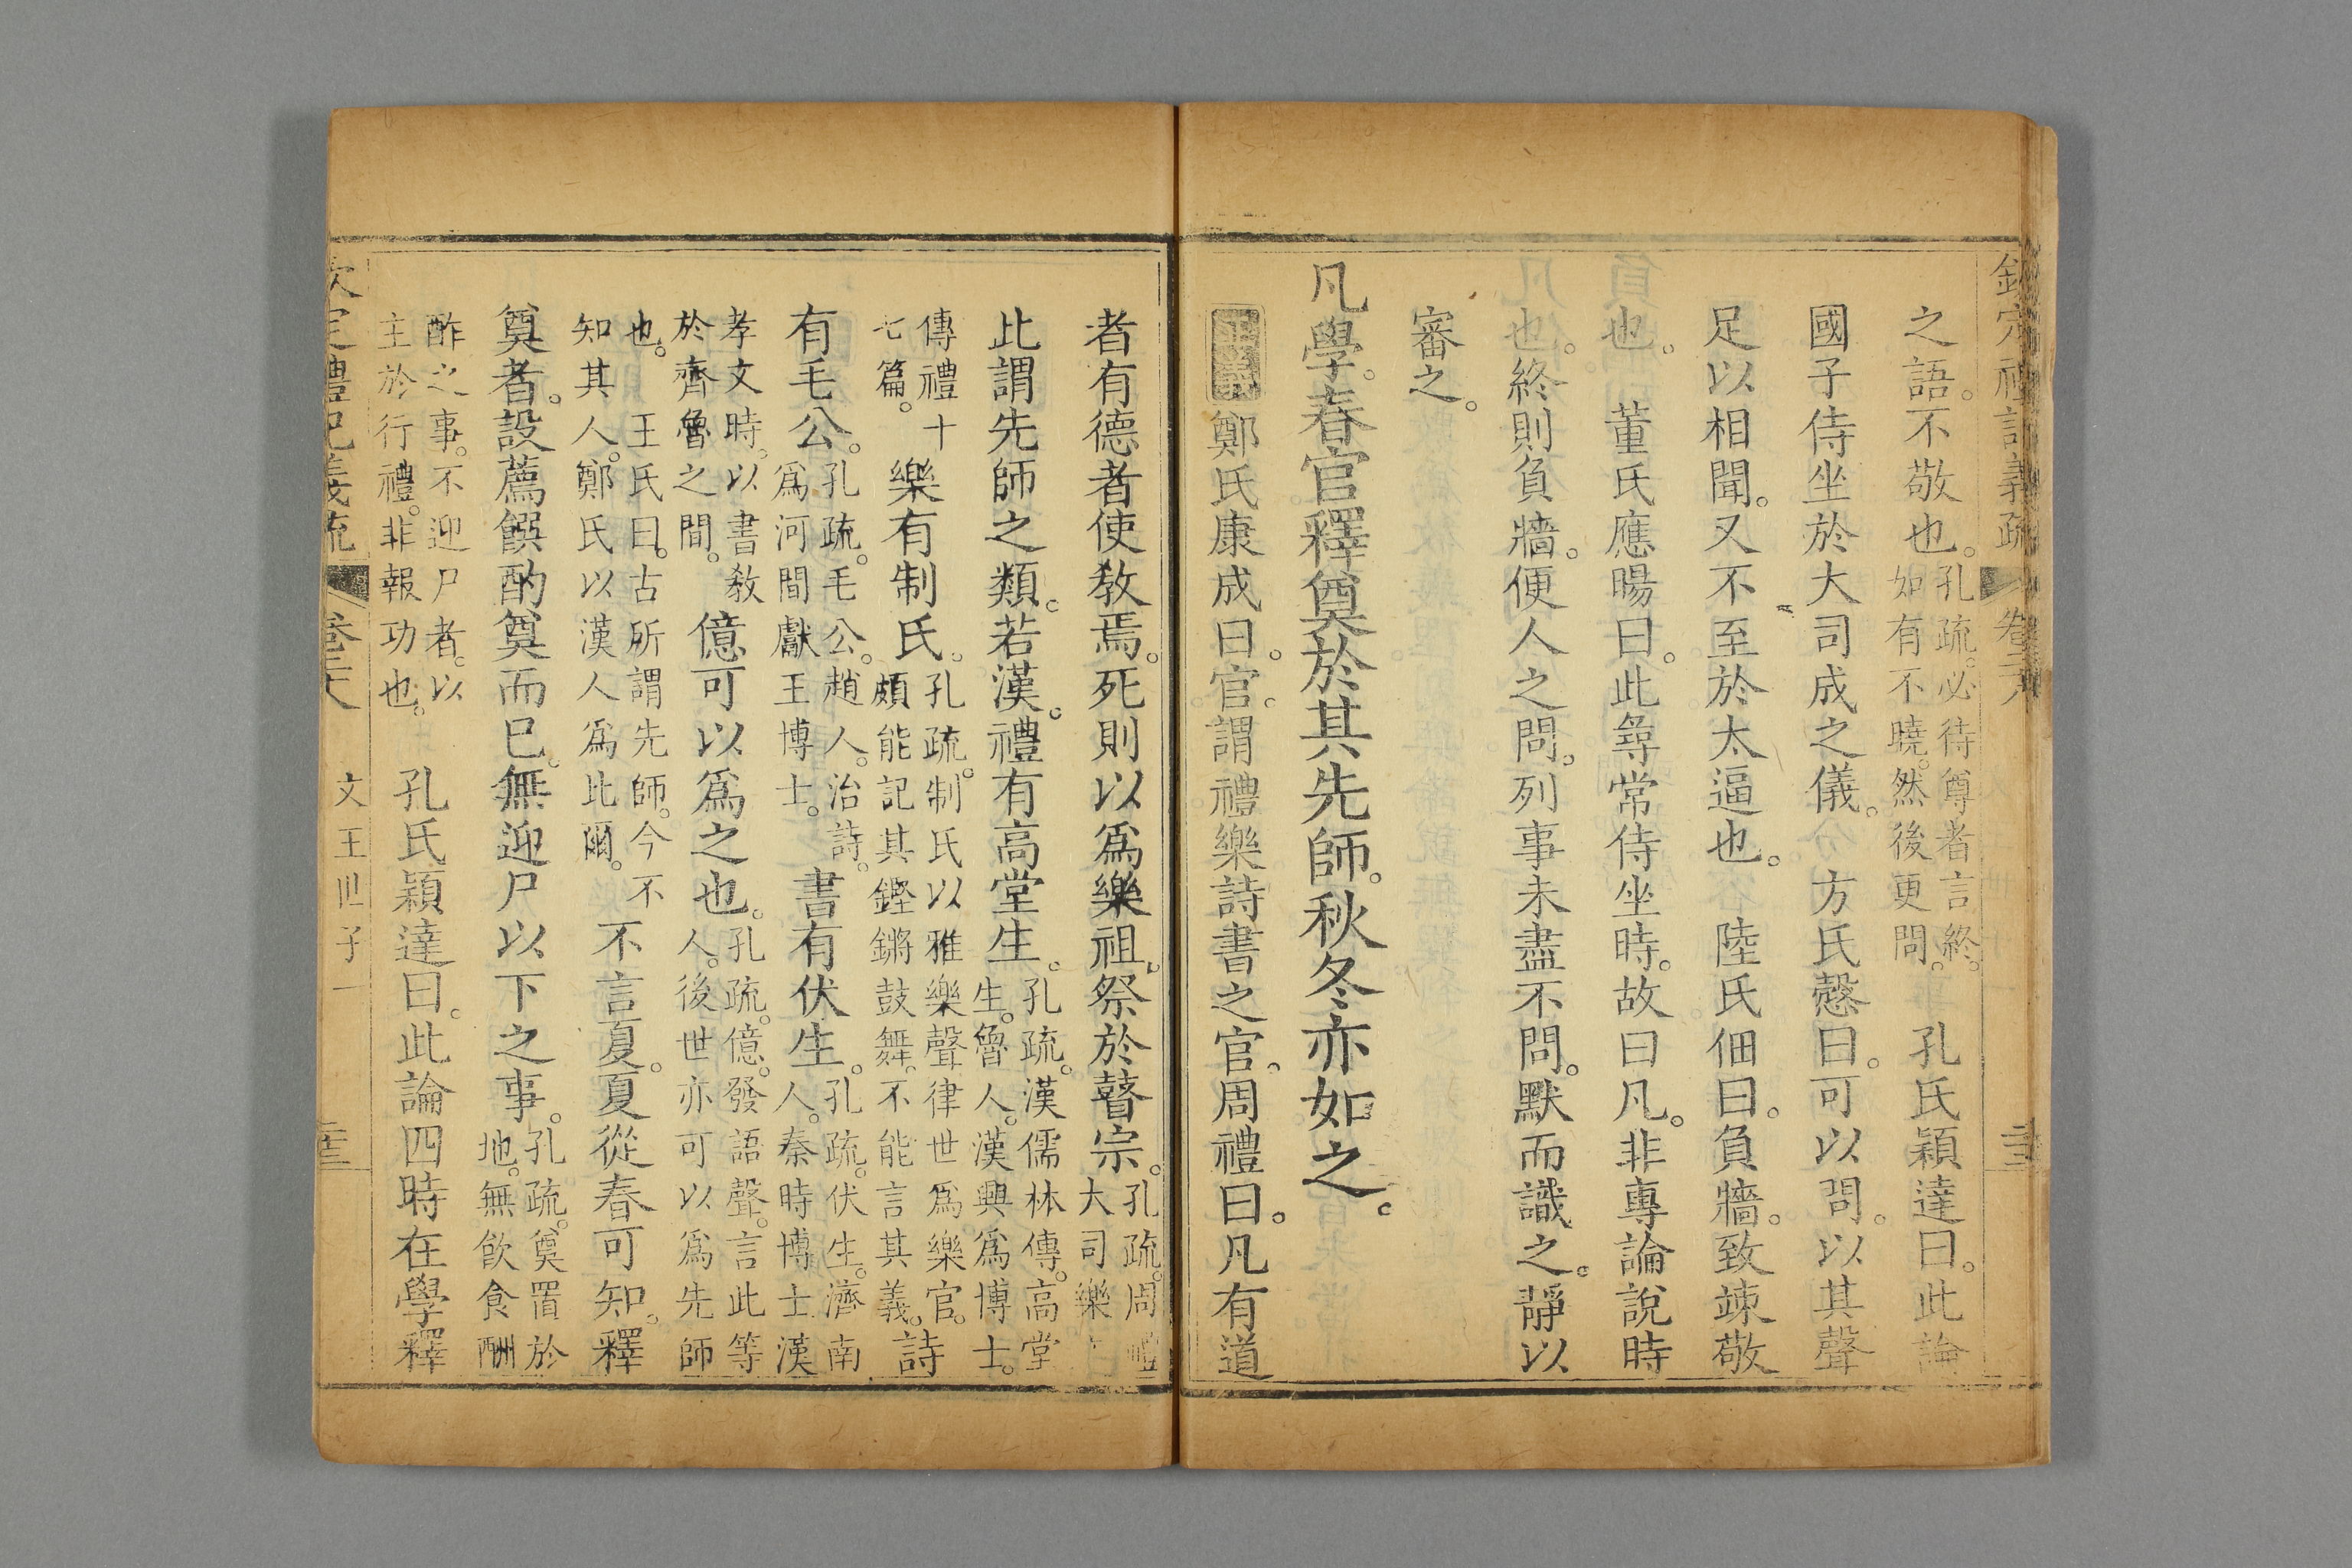 欽定禮記義疏 卷二十八
之語。不敬也。孔疏。必待尊者言終。如有不曉。然後更問。 孔氏穎達曰。此論
國子侍坐於大司成之儀。 方氏慤曰。可以問。以其聲
足以相聞。又不至於太逼也。 陸氏佃曰。負牆。致竦敬
也。 董氏應暘曰。此尋常侍坐時。故曰凡。非專論說時
也。終則負牆。便人之問。列事未盡不問。默而識之。靜以
審之。
凡學。春官釋奠於其先師。秋冬亦如之。
正義 鄭氏康成曰。官。謂禮樂詩書之官。周禮曰。凡有道
者有德者使敎焉。死則以爲樂祖。祭於瞽宗。孔疏。周禮大司樂
此謂先師之類。若漢。禮有高堂生。孔疏。漢儒林傳。高堂生。魯人。漢興爲博士。
傳禮十七篇。樂有制氏。孔疏。制氏以雅樂聲律世爲樂官。頗能記其鏗鏘鼓舞。不能言其義。詩
有毛公。孔疏。毛公。趙人。治詩。爲河間獻王博士。書有伏生。孔疏。伏生。濟南人。秦時博士。漢
孝文時。以書敎於齊魯之間。億可以爲之也。孔疏。億。發語聲。言此等人。後世亦可以爲先師
也。 王氏曰。古所謂先師。今不知其人。鄭氏以漢人爲此爾。不言夏。夏從春可知。釋
奠者。設薦饌酌奠而已。無迎尸以下之事。孔疏。奠置於地。無飮食酬
酢之事。不迎尸者。以主於行禮。非報功也。 孔氏穎達曰。此論四時在學釋
定禮記義疏 卷二十八 文王世子一